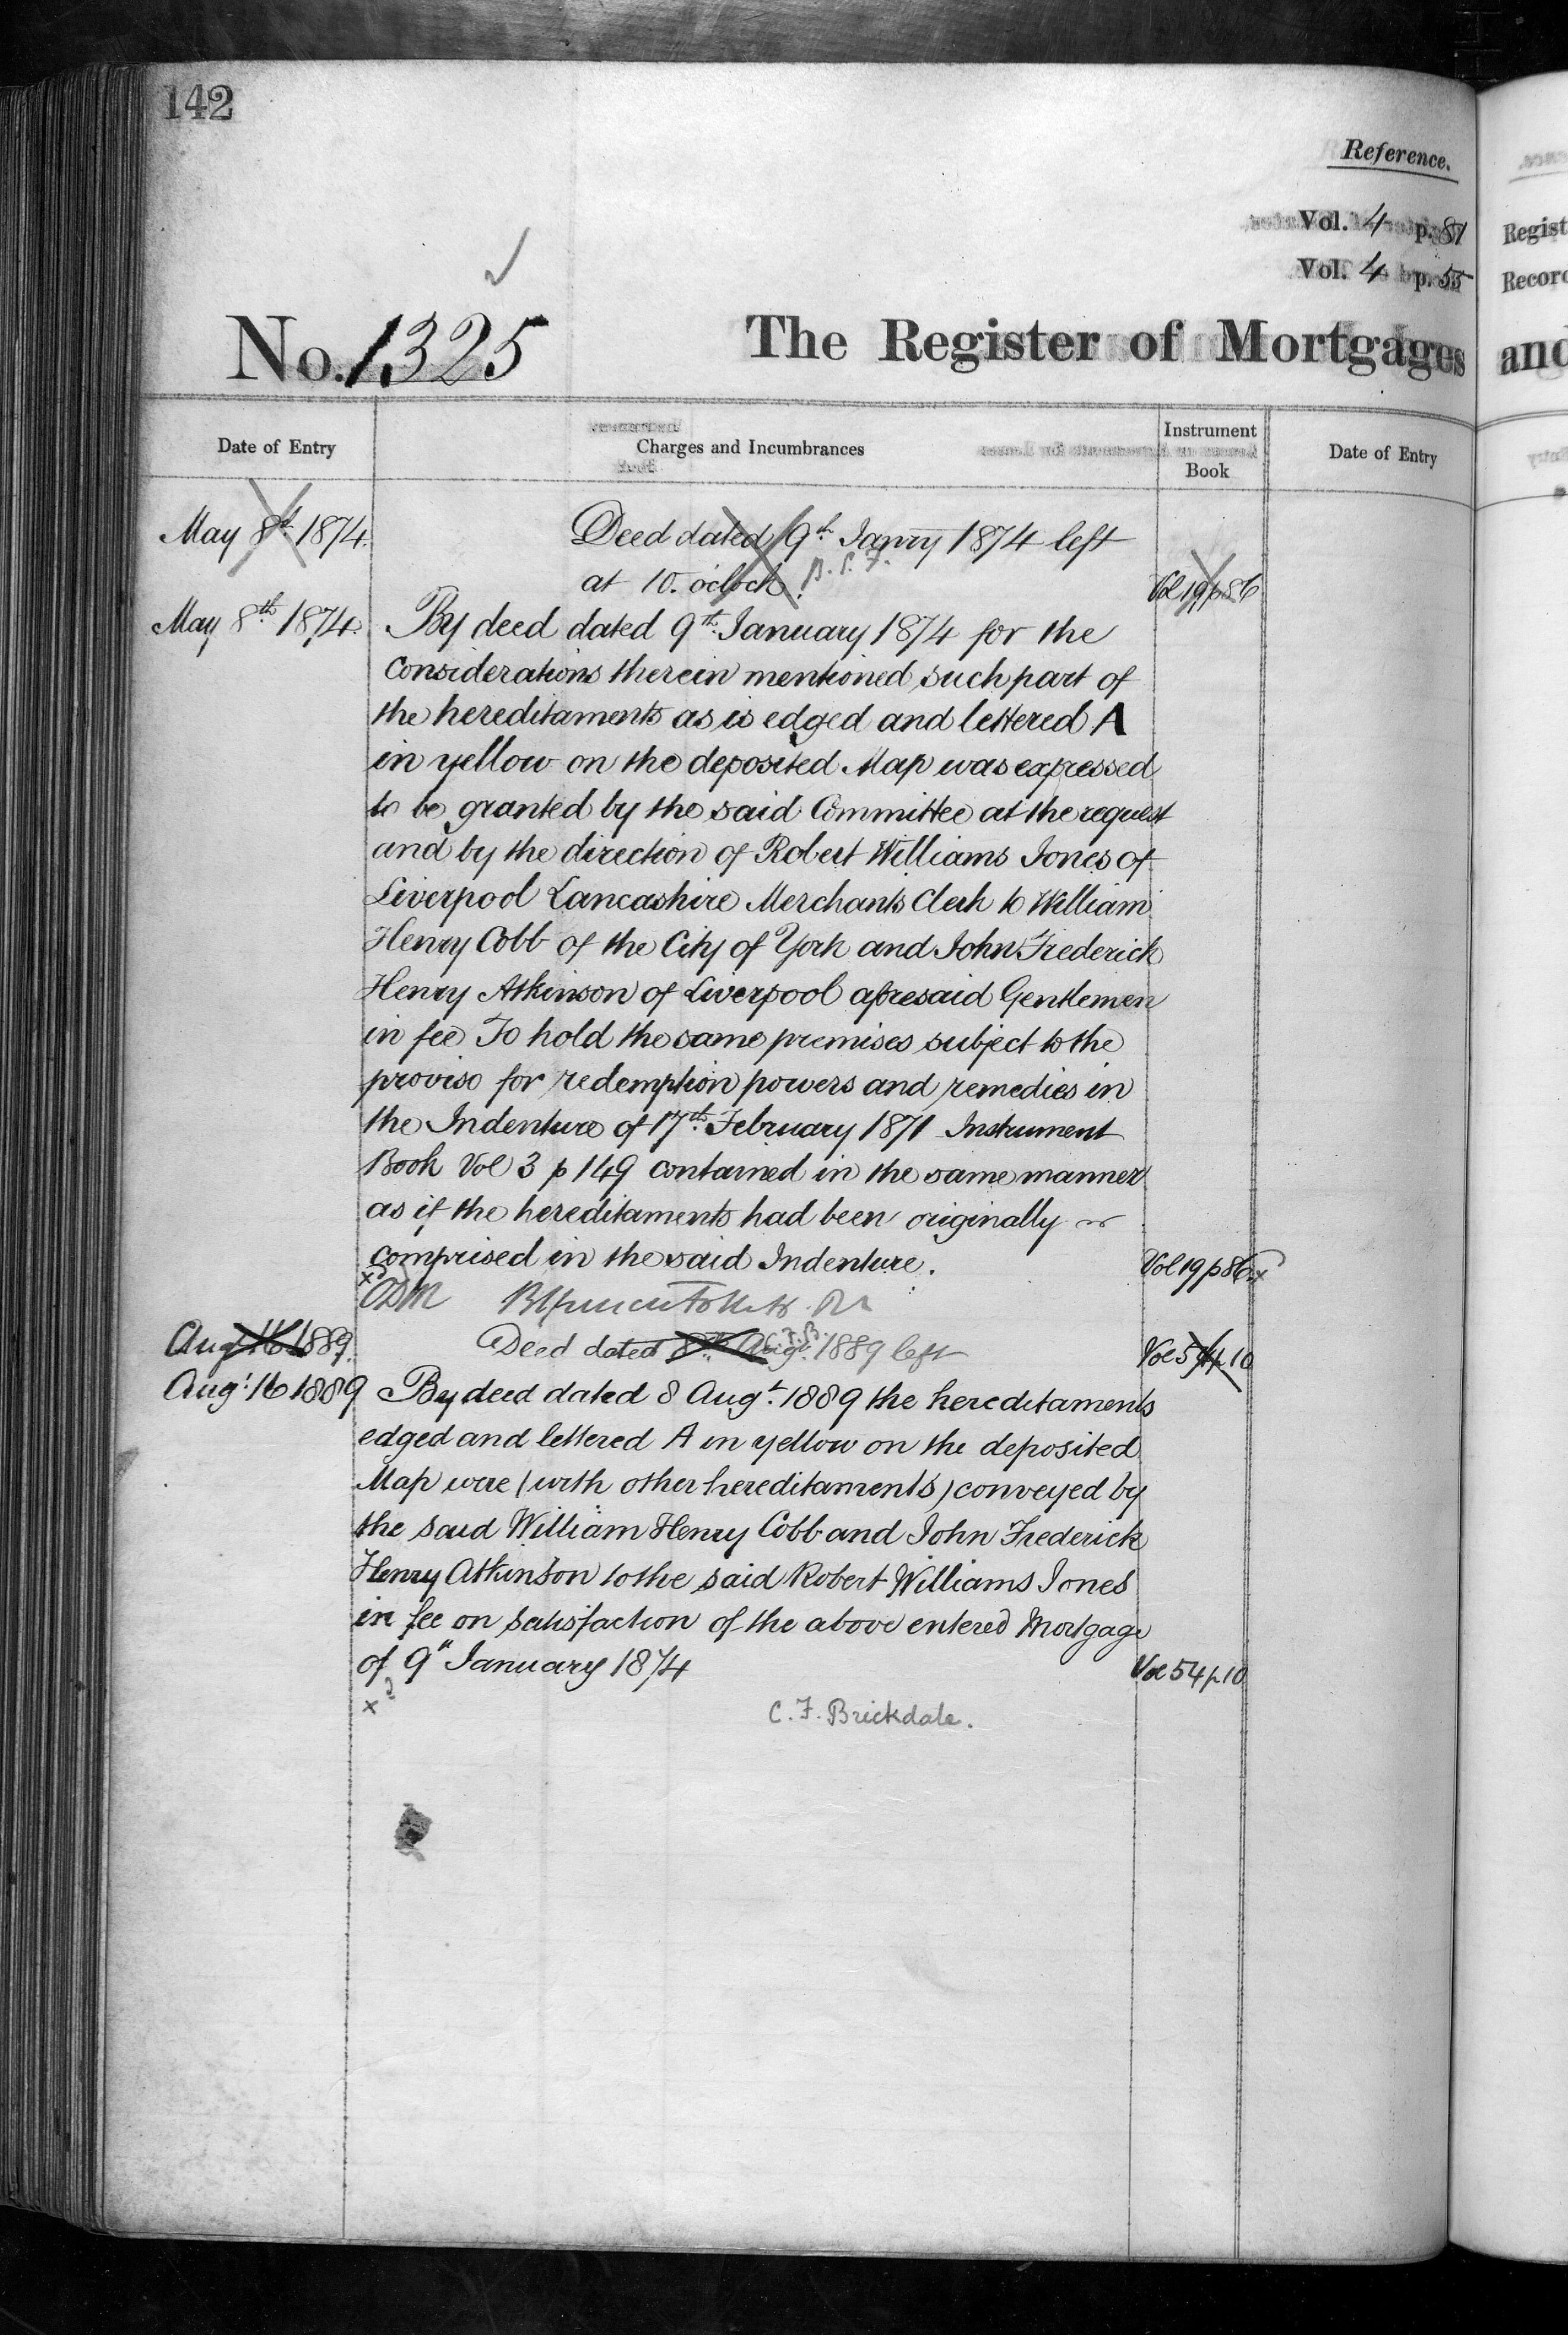 142
Reference.
Vol. 4 p. 81
Vol. 4 p. 55
Regist
Record
No. 1325
The Register of Mortgages
and
Date of Entry
Charges and Incumbrances
Instrument Book
Date of Entry
May 8th 1874.
Deed dated 9th Janry 1874 left
at 10. o'clock.
Vol 19 p 86
May 8th 1874.
By deed dated 9th January 1874 for the
considerations therein mentioned such part of
the hereditaments as is edged and lettered A
in yellow on the deposited Map was expressed
to be granted by the said Committee at the request
and by the direction of Robert Williams Jones of
Liverpool Lancashire Merchants Clerk to William
Henry Cobb of the City of York and John Frederick
Henry Atkinson of Liverpool aforesaid Gentlemen
in fee To hold the same premises subject to the
proviso for redemption powers and remedies in
the Indenture of 17th February 1871 Instrument
Book Vol 3 p 149 contained in the same manner
as if the hereditaments had been originally
comprised in the said Indenture.
Vol 19 p 86
Aug 16 1889.
Deed dated 8th Augt. 1889 left
C.F.B.
Vol 54 p 10
Augt 16 1889
By deed dated 8 Augt. 1889 the hereditaments
edged and lettered A in yellow on the deposited
Map were (with other hereditaments) conveyed by
the said William Henry Cobb and John Frederick
Henry Atkinson to the said Robert Williams Jones
in fee on satisfaction of the above entered Mortgage
of 9th January 1874
Vol 54 p 10
C. F. Brickdale.